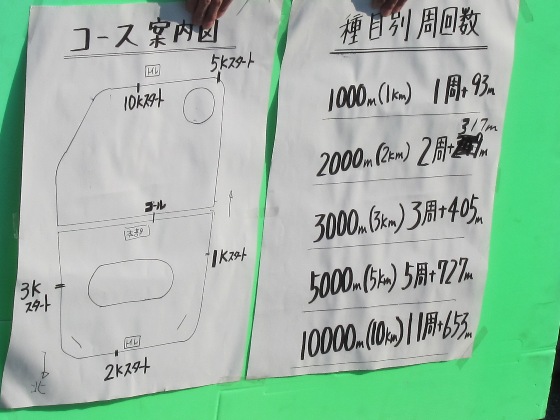 コース案内図
トイレ
5Kスタート
10Kスタート
ゴール
本部
1Kスタート
3K
スタート
トイレ
2Kスタート
北
種目別 周回数
1000m(1km) 1周+93m
317m
2000m(2km) 2周+
3000m(3km) 3周+405m
5000m(5km) 5周+727m
10000m(10km) 11周+653m